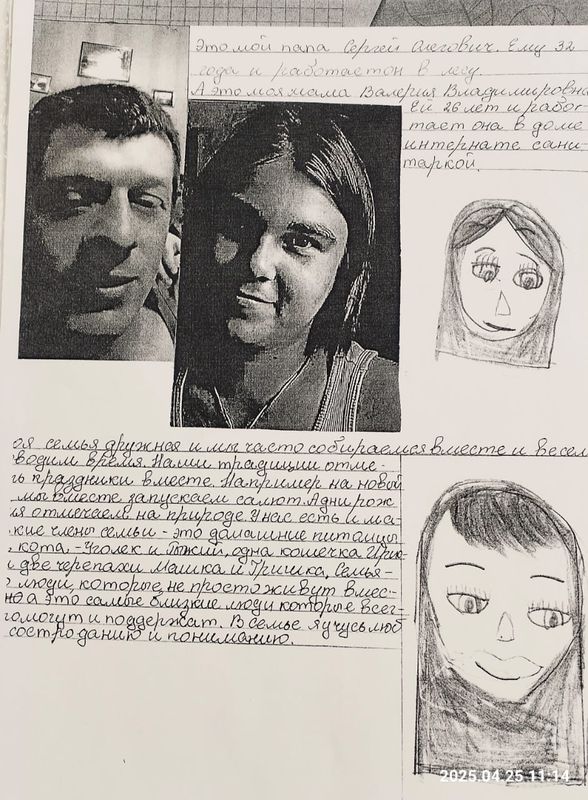 Это мой папа Сергей Олегович. Ему 32
года и работает он в лесу.
А это моя мама Валерия Владимировна
Ей 26 лет и рабо-
тает она в доме
интернате сани-
таркой.
оя семья дружная и мы часто собираемся вместе и весел
водим время. Наши традиции отме-
ь праздники вместе. Например на новый
мы вместе запускаем салют. А дни рож
ия отмечаем на природе. У нас есть и ма-
кие члены семьи - это домашние питомцы
кота - Уголек и Рыжий, одна кошечка
две черепахи Машка и Гришка. Семья-
люди, которые не просто живут вмес-
на а это самые близкие люди которые всег-
помогут и поддержат. В семье я учусь люб
состроданию и пониманию.
2025.04.25 11:14